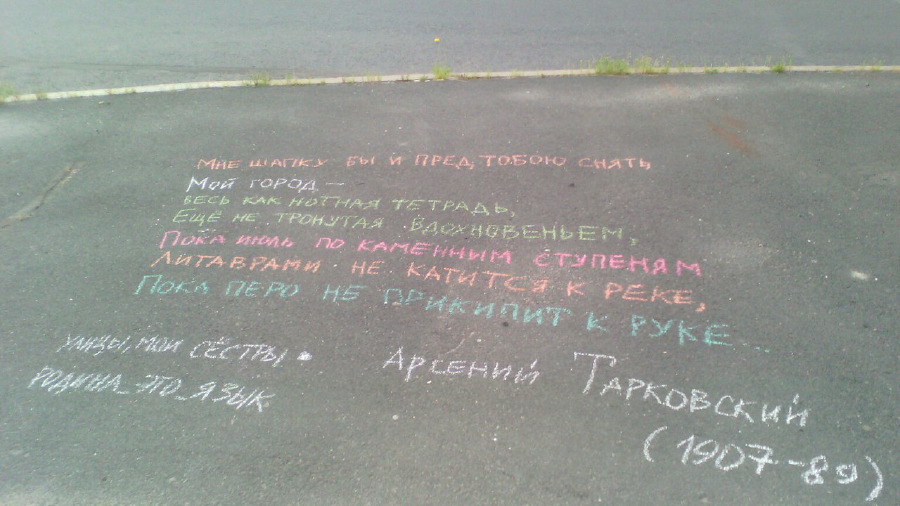 Мне шапку бы и пред тобою снять,
Мой город —
весь как нотная тетрадь,
Ещё не тронутая вдохновеньем,
Пока июль по каменным ступеням
литаврами не катится к реке,
Пока перо не прикипит к руке...
улицы, мои сёстры.
Родина_это_язык
Арсений Тарковский
(1907-89)